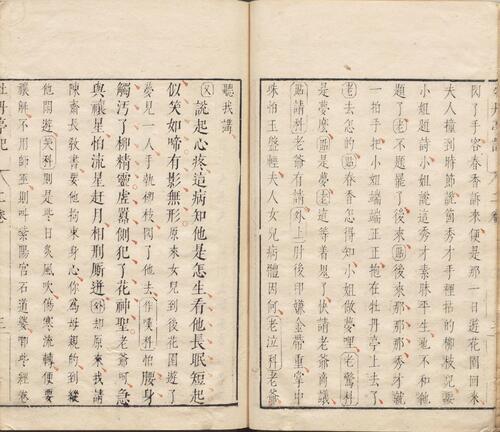 閃了手容春訴來便是那一日遊花園回來
夫人撞到時節說箇秀才手裡拈的柳枝兒要
小姐題詩小姐說這秀才素昧平生也不和他
題了老不題罷了後來貼後來那那那秀才就
一拍手把小姐端端正正抱在牡丹亭上去了
老去怎的貼春香怎得知小姐做夢哩老驚科
是夢麽貼是夢老這等着鬼了快請老爺商議
貼請科老爺有請外上肘後印嫌金帶重掌中
珠怕玉盤輕夫人女兒病體因何老泣科老爺
聽我講
又說起心疼這病知他是怎生看他長眠短起
似笑如啼有影無形原來女兒到後花園遊了
夢見一人手執柳枝閃了他去作嘆科怕腰身
觸汚了柳精靈虛囂側犯了花神聖老爺呵急
與禳星怕流星赶月相刑廝迸外却原來我請
陳齋長教書要他拘束身心你為母親的到縱
他閒遊笑科則是些日炙風吹傷寒流轉便要
禳解不用師巫則叫紫陽宮石道婆誦些經卷
牡丹亭記 上卷 三